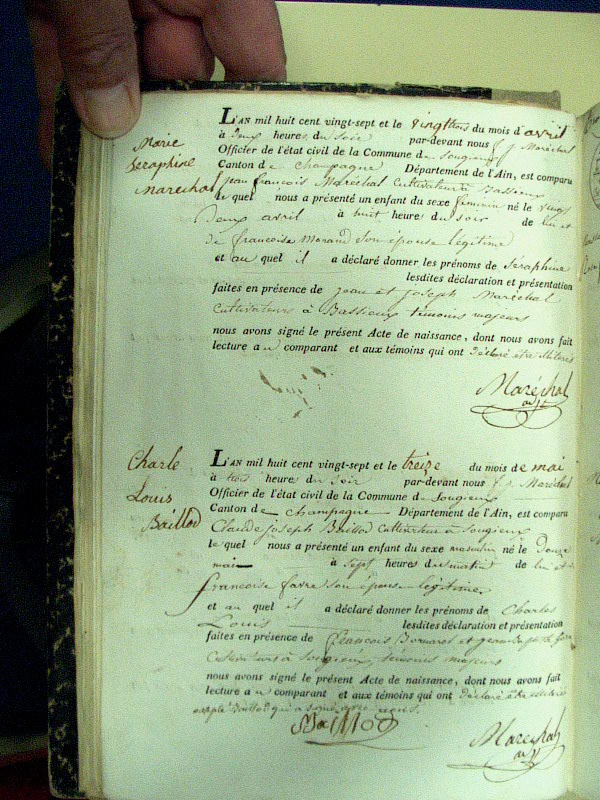 Marie
Seraphine
Marechal
L'AN mil huit cent vingt-sept et le vingt trois du mois d'avril
à deux heures du soir par-devant nous f. j. Maréchal
Officier de l'état civil de la Commune de Songieu
Canton de Champagne Département de l'Ain, est comparu
Jean françois Maréchal Cultivateur à Bassieux
le quel nous a présenté un enfant du sexe féminin né le vingt
Deux avril à huit heures du soir de lui et
de françoise Morand son épouse légitime
et au quel il a déclaré donner les prénoms de Séraphine
lesdites déclaration et présentation
faites en présence de Jean et Joseph Maréchal
Cultivateurs à Bassieux témoins majeurs
nous avons signé le présent Acte de naissance, dont nous avons fait
lecture au comparant et aux témoins qui ont déclaré être illiterés
Maréchal
Charle
Louis
Baillod
L'AN mil huit cent vingt-sept et le treize du mois de mai
à trois heures du soir par-devant nous f. j. Maréchal
Officier de l'état civil de la Commune de Songieux
Canton de Champagne Département de l'Ain, est comparu
Claude Joseph Baillod cultivateur à Songieux
le quel nous a présenté un enfant du sexe masculin né le Douze
mai à sept heures du matin de lui et de
françoise favre son épouse légitime
et au quel il a déclaré donner les prénoms de Charles
Louis lesdites déclaration et présentation
faites en présence de françois Bornarel et jean
Cultivateurs à Songieux, témoins majeurs
nous avons signé le présent Acte de naissance, dont nous avons fait
lecture au comparant et aux témoins qui ont déclaré être illiterés
excepté Baillod qui a signé avec nous.
Baillod
Marechal